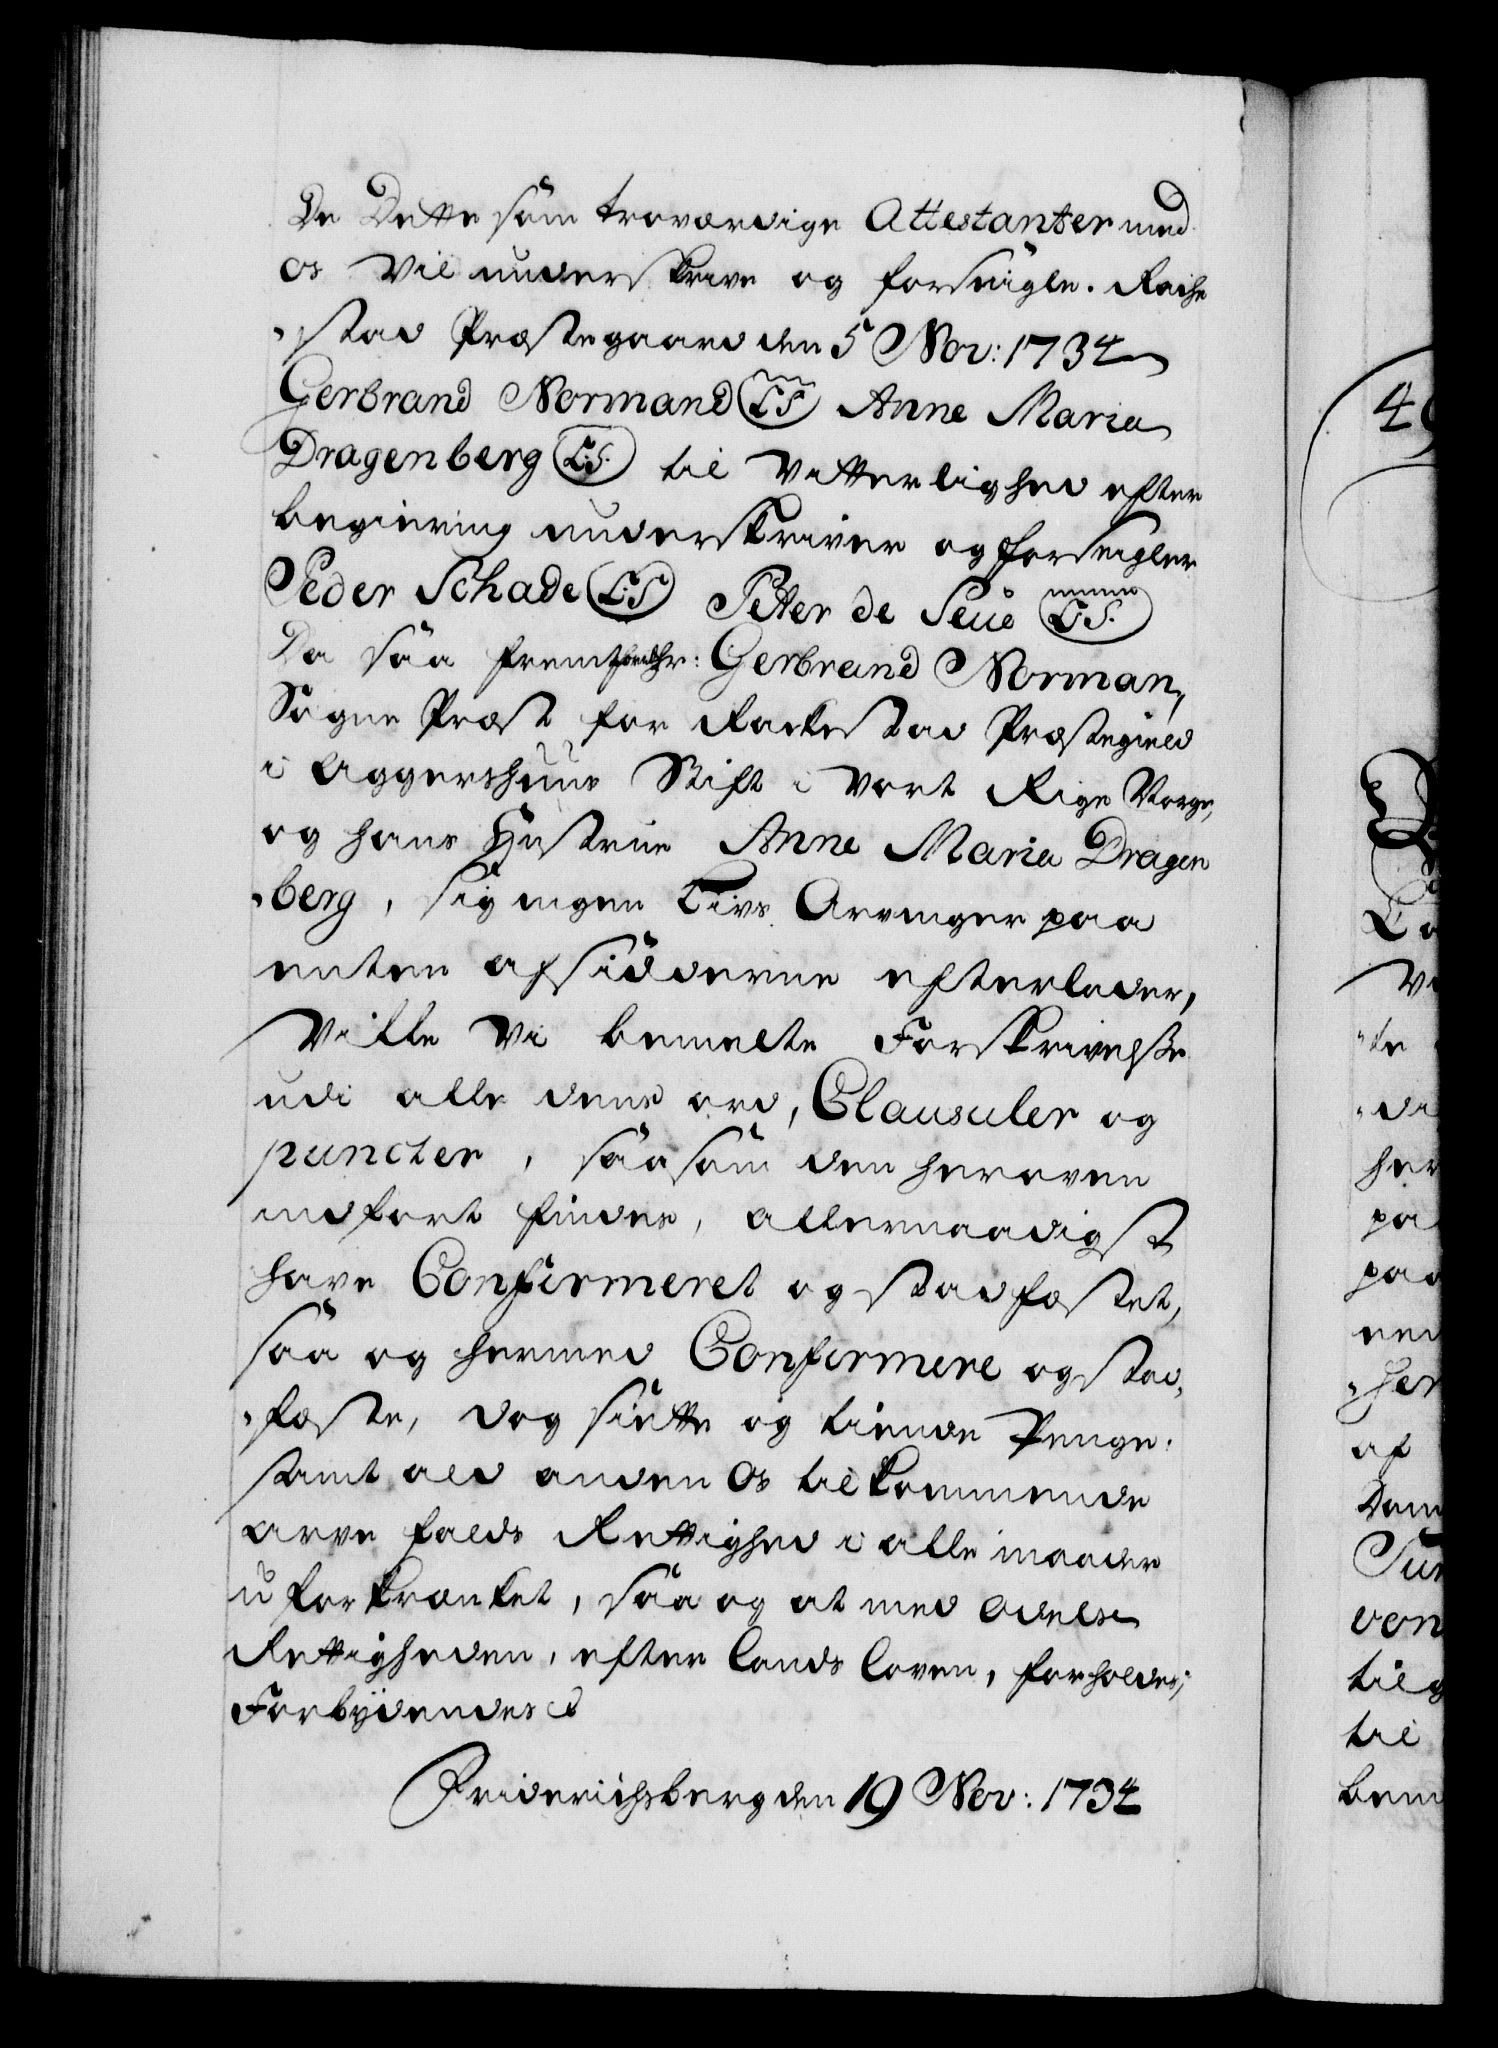 De Dette som troværdige Attestanter med
os vil underskrive og forseigle. Rache¬
„stad Præstegaard den 5 Nov: 1734
Gerbrand Normand (L.S) Anne Maria
Dragenberg (L.S.) til Vitterlighed efter
begiering underskriver og forseigler
Peder Schade (L.S) Peter de Seue (L.S.)
Da saa fremt bemte hr: Gerbrand Norman,
Sogne Præst for Rackestad Præstegield
i Aggershuus Stift i vort Rige Norge,
og hans Hustrue Anne Maria Dragen
„berg, sig ingen Livs Arvinger paa
enten af sidderne efterlader,
Ville Vi bemelte Forskrivelse
udi alle dens ord, Clausuler og
puncter, saasom den heroven
indført findes, allernaadigst
have Confirmeret og stadfæstet,
saa og hermed Confirmere og stad„
„fæste, dog siette og tiende Penge,
samt ald anden Os tilkommende
arve falds Rettighed i alle maader
uforkrænket, saa og at med Odels
Rettigheden, efter Lands Loven, forholdes;
Forbydendes &
Friderichsberg den 19 Nov: 1734